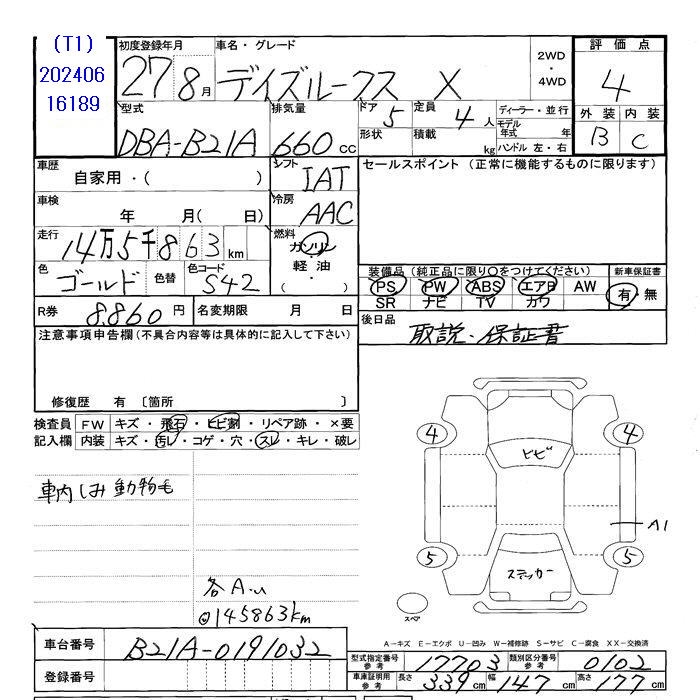 (T1)
202406
16189
初度登録年月 車名・グレード
27 8月 デイズルークス X
2WD
・
4WD
評価点
4
外装 内装
B C
型式 排気量 ドア 定員 ディーラー・並行
DBA-B21A 660cc 5 4人
モデル年式 年
形状 積載 kg ハンドル 左・右
車歴 シフト セールスポイント (正常に機能するものに限ります)
自家用・( ) IAT
車検 冷房
年 月( 日) AAC
走行 燃料
14万5千863km ガソリン
・
軽油
・( )
色 色替 色コード
ゴールド S42
装備品(純正品に限り○をつけてください) 新車保証書
PS PW ABS エアB AW 有・無
SR ナビ TV カワ
R券 8.860円 名変期限 月 日
後日品 取説・保証書
注意事項申告欄(不具合内容等は具体的に記入して下さい)
修復歴 有 〔箇所 〕
検査員 FW キズ・飛石・ヒビ割・リペア跡・×要
記入欄 内装 キズ・汚レ・コゲ・穴・スレ・キレ・破レ
車内しみ動物毛
4 4
ヒビ
A1
5 5
ステッカー
スペア
各A.u
◎145863km
A-キズ E-エクボ U-凹み W-補修跡 S-サビ C-腐食 XX-交換済
車台番号 B21A-0191032
型式指定番号 参考 17703 類別区分番号 参考 0102
登録番号
車庫証明用 参考 長さ 339cm 幅 147cm 高さ 177cm